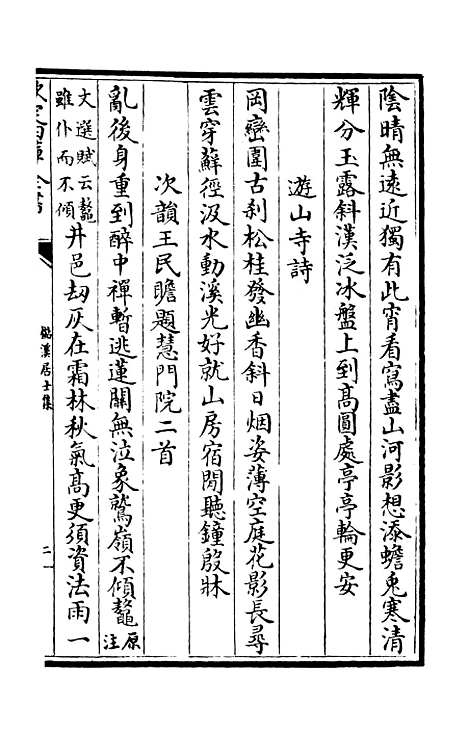 陰晴無遠近獨有此宵看寫盡山河影想添蟾兎寒清
輝分玉露斜漢泛冰盤上到髙圓處亭亭輪更安
遊山寺詩
岡巒圍古刹松桂發幽香斜日烟姿薄空庭花影長尋
雲穿蘚徑汲水動溪光好就山房宿閒聽鐘殷牀
次韻王民瞻題慧門院二首
亂後身重到醉中禪暫逃蓮關無泣象鷲嶺不傾鼇原注
文選賦云鼇雖仆而不傾井邑刼灰在霜林秋氣髙更須資法雨一
全書
溪居士集
二